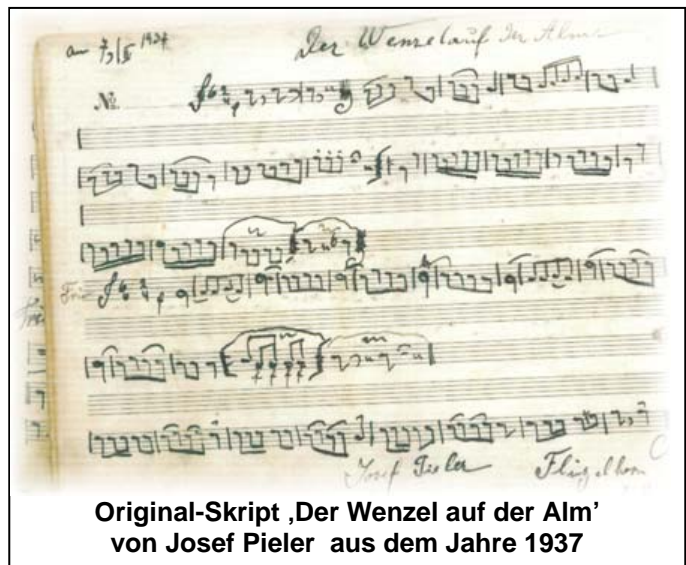 am 7/3/II 1937
Der Wenzel auf der Alm
No.
Trio
Josef Pieler Flügelhorn
Original-Skript ‚Der Wenzel auf der Alm’
von Josef Pieler aus dem Jahre 1937